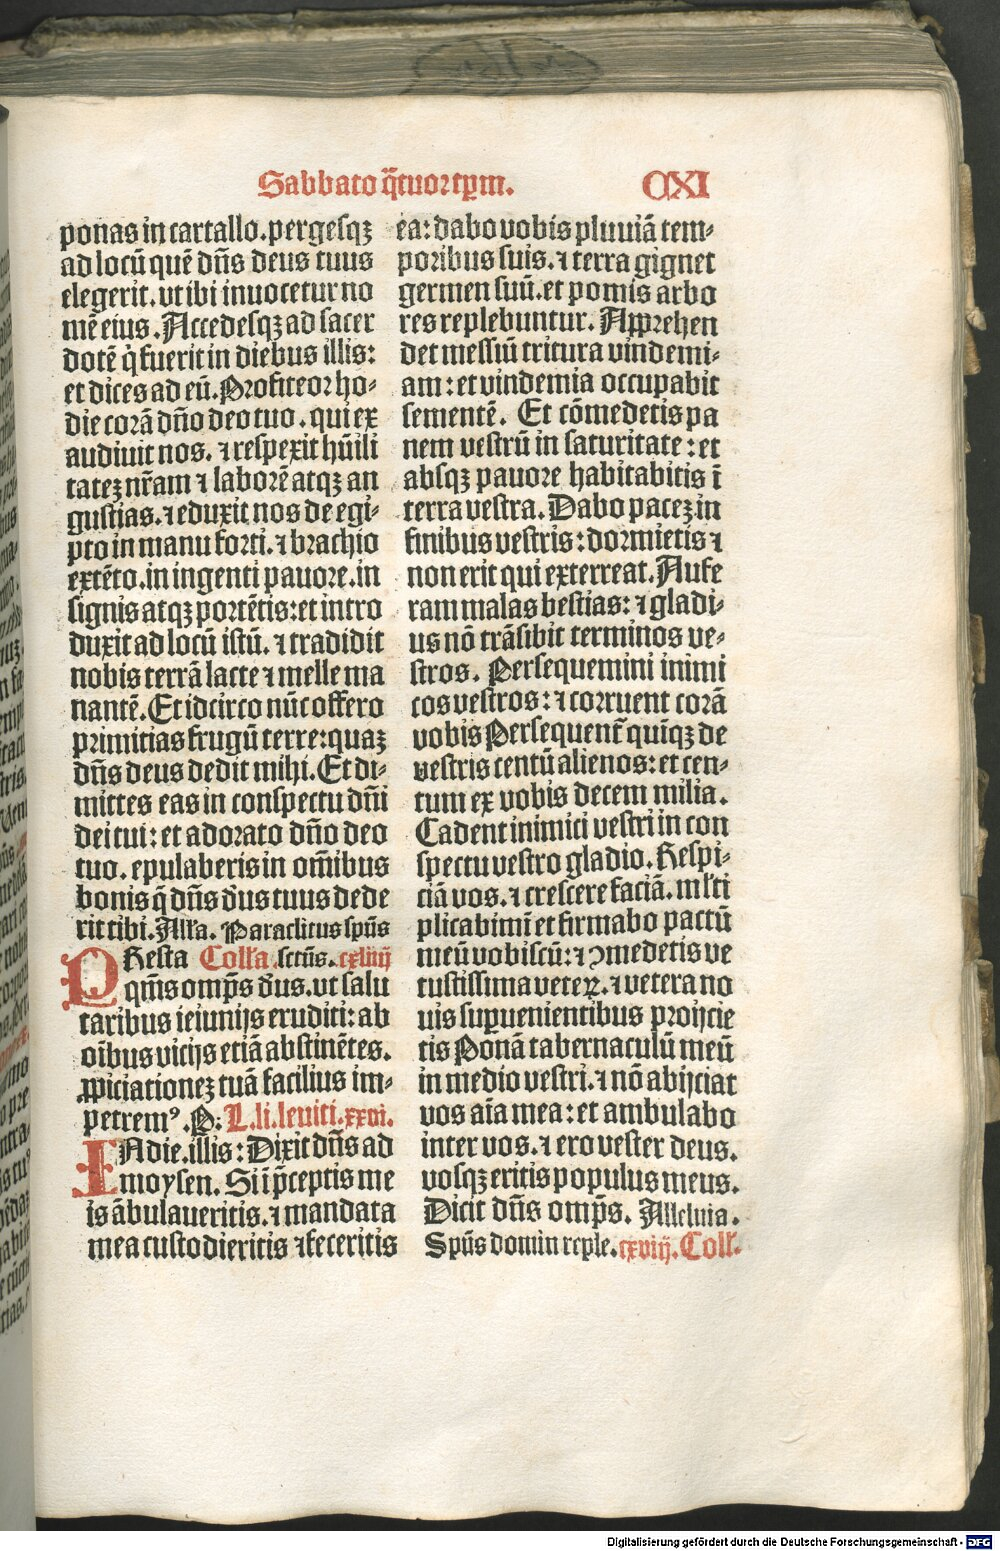 Sabbato q̃tuortꝑm. CXI
ponas in cartallo. pergesqꝫ
ad locū quē dñs deus tuus
elegerit. vt ibi inuocetur no
mē eius. Accedesqꝫ ad sacer
dotē q̇ fuerit in diebus illis:
et dices ad eū. Profiteor ho⸗
die corā dño deo tuo. qui ex
audiuit nos. ⁊ respexit hūili
tateꝫ nr̃am ⁊ laborē atqꝫ an
gustias. ⁊ eduxit nos de egi⸗
pto in manu forti. ⁊ brachio
extēto. in ingenti pauore. in
signis atqꝫ portētis: et intro
duxit ad locū istū. ⁊ tradidit
nobis terrā lacte ⁊ melle ma
nantē. Et idcirco nūc offero
primitias frugū terre: quaꝫ
dñs deus dedit mihi. Et di⸗
mittes eas in conspectu dñi
dei tui: et adorato dño deo
tuo. epulaberis in om̄ibus
bonis q̄ dñs d̄us tuus dede
rit tibi. Alľa. Paraclitus spūs
PResta Colľa. sctūs. cxliiij
qm̄s omp̄s d̄us. vt salu
taribus ieiunijs eruditi: ab
oībus vicijs etiā abstinētes.
ꝓpiciationeꝫ tuā facilius im⸗
petremꝰ. P: L. li. leuiti. xxvi.
IN die. illis: Dixit dñs ad
moysen. Si i p̄ceptis me
is ābulaueritis. ⁊ mandata
mea custodieritis ⁊ feceritis
ea: dabo vobis pluuiā tem⸗
poribus suis. ⁊ terra gignet
germen suū. et pomis arbo
res replebuntur. Apprehen
det messiū tritura vindemi⸗
am: et vindemia occupabit
sementē. Et cōmedetis pa
nem vestrū in saturitate: et
absqꝫ pauore habitabitis ī
terra vestra. Dabo paceꝫ in
finibus vestris: dormietis ⁊
non erit qui exterreat. Aufe
ram malas bestias: ⁊ gladi⸗
us nō trāsibit terminos ve⸗
stros. Persequemini inimi
cos vestros: ⁊ corruent corā
vobis Persequent̃ quiqꝫ de
vestris centū alienos: et cen⸗
tum ex vobis decem milia.
Cadent inimici vestri in con
spectu vestro gladio. Respi⸗
ciā vos. ⁊ crescere faciā. mľti
plicabimī et firmabo pactū
meū vobiscū: ⁊ ꝯmedetis ve
tustissima veteꝝ. ⁊ vetera no
uis suꝑuenientibus proijcie
tis Ponā tabernaculū meū
in medio vestri. ⁊ nō abijciat
vos aīa mea: et ambulabo
inter vos. ⁊ ero vester deus.
vosqꝫ eritis populus meus.
Dicit dñs omp̄s. Alleluia.
Spūs domin reple. cxviij. Colľ.
Digitalisierung gefördert durch die Deutsche Forschungsgemeinschaft - DFG